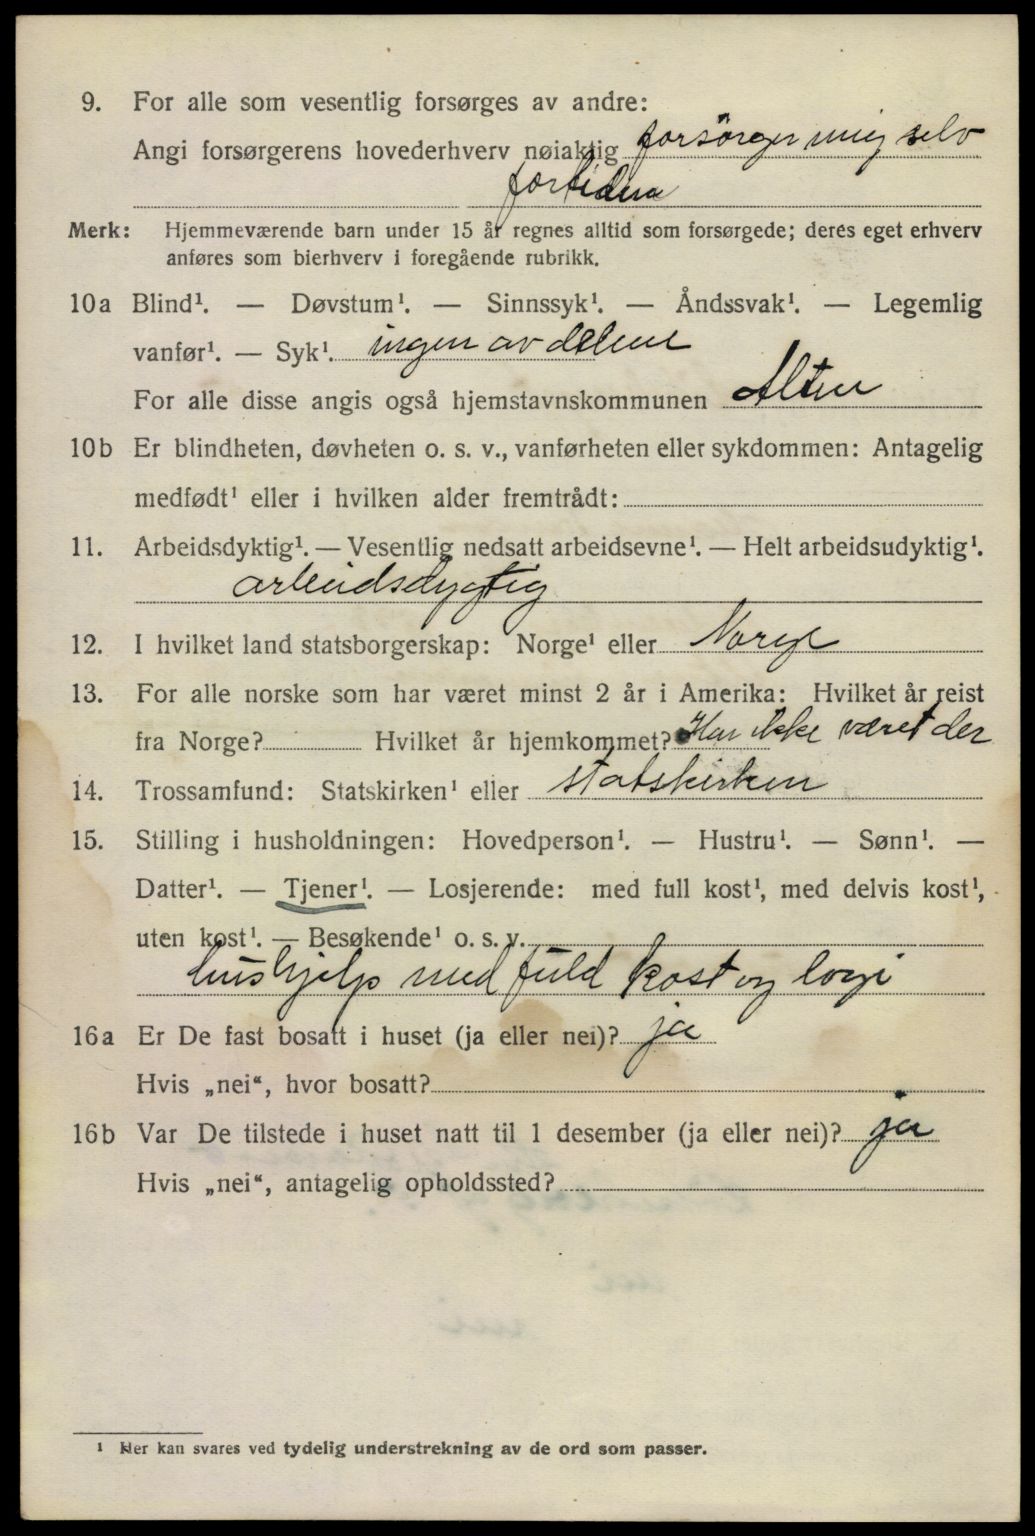 9. For alle som vesentlig forsørges av andre:
Angi forsørgerens hovederhverv nøiaktig forsörger mig selv
fortiden
Merk: Hjemmeværende barn under 15 år regnes alltid som forsørgede; deres eget erhverv
anføres som bierhverv i foregående rubrikk.
10a Blind¹. — Døvstum¹. — Sinnssyk¹. — Åndssvak¹. — Legemlig
vanfør¹. — Syk¹. ingen av delene
For alle disse angis også hjemstavnskommunen Alten
10b Er blindheten, døvheten o. s. v., vanførheten eller sykdommen: Antagelig
medfødt¹ eller i hvilken alder fremtrådt:
11. Arbeidsdyktig¹. — Vesentlig nedsatt arbeidsevne¹. — Helt arbeidsudyktig¹.
arbeidsdygtig
12. I hvilket land statsborgerskap: Norge¹ eller Norge
13. For alle norske som har været minst 2 år i Amerika: Hvilket år reist
fra Norge? Hvilket år hjemkommet? Har ikke været der
14. Trossamfund: Statskirken¹ eller statskirken
15. Stilling i husholdningen: Hovedperson¹. — Hustru¹. — Sønn¹. —
Datter¹. — Tjener¹. — Losjerende: med full kost¹, med delvis kost¹,
uten kost¹. — Besøkende¹ o. s. v.
hushjelp med fuld kost og logi
16a Er De fast bosatt i huset (ja eller nei)? ja
Hvis „nei“, hvor bosatt?
16b Var De tilstede i huset natt til 1 desember (ja eller nei)? ja
Hvis „nei“, antagelig opholdssted?
¹ Her kan svares ved tydelig understrekning av de ord som passer.